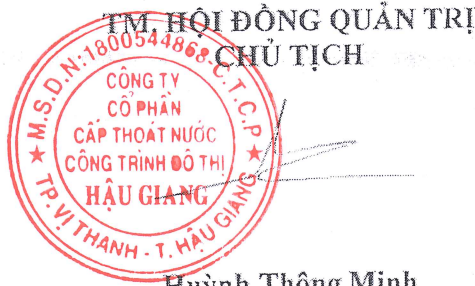 TM. HỘI ĐỒNG QUẢN TRỊ
CHỦ TỊCH
M.S.D.N:1800544868-C.T.C.P
CÔNG TY
CỔ PHẦN
CẤP THOÁT NƯỚC
CÔNG TRÌNH ĐÔ THỊ
HẬU GIANG
TP. VỊ THANH - T. HẬU GIANG
Huỳnh Thông Minh